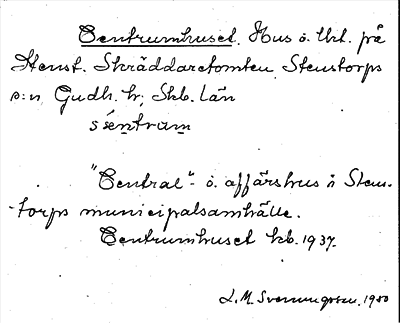 Centrumhuset. Hus o. lht. på
Hemst. Skräddaretomten, Stenstorps
s:n, Gudh. hr; Skb. län
séntrum
"Central"- o. affärshus i Stens-
torps municipalsamhälle.
Centrumhuset kb. 1937.
L. M. Svenungsson. 1980